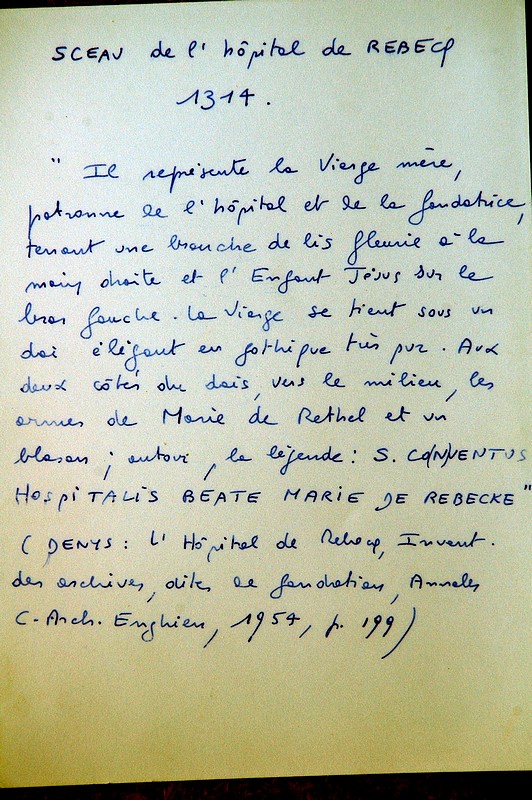 SCEAU de l'hôpital de REBECQ
1314.
" Il représente la Vierge mère,
patronne de l'hôpital et de la fondatrice,
tenant une branche de lis fleurie à la
main droite et l'Enfant Jésus sur le
bras gauche. La Vierge se tient sous un
dai élégant en gothique très pur. Aux
deux côtés du dais, vers le milieu, les
armes de Marie de Rethel et un
blason ; autour, la légende : S. CO(N)VENTUS
HOSPITALIS BEATE MARIE DE REBECKE"
(DENYS : L'Hôpital de Rebecq, Invent.
des archives, dites de fondation, Annales
C. Arch. Enghien, 1954, p. 199)